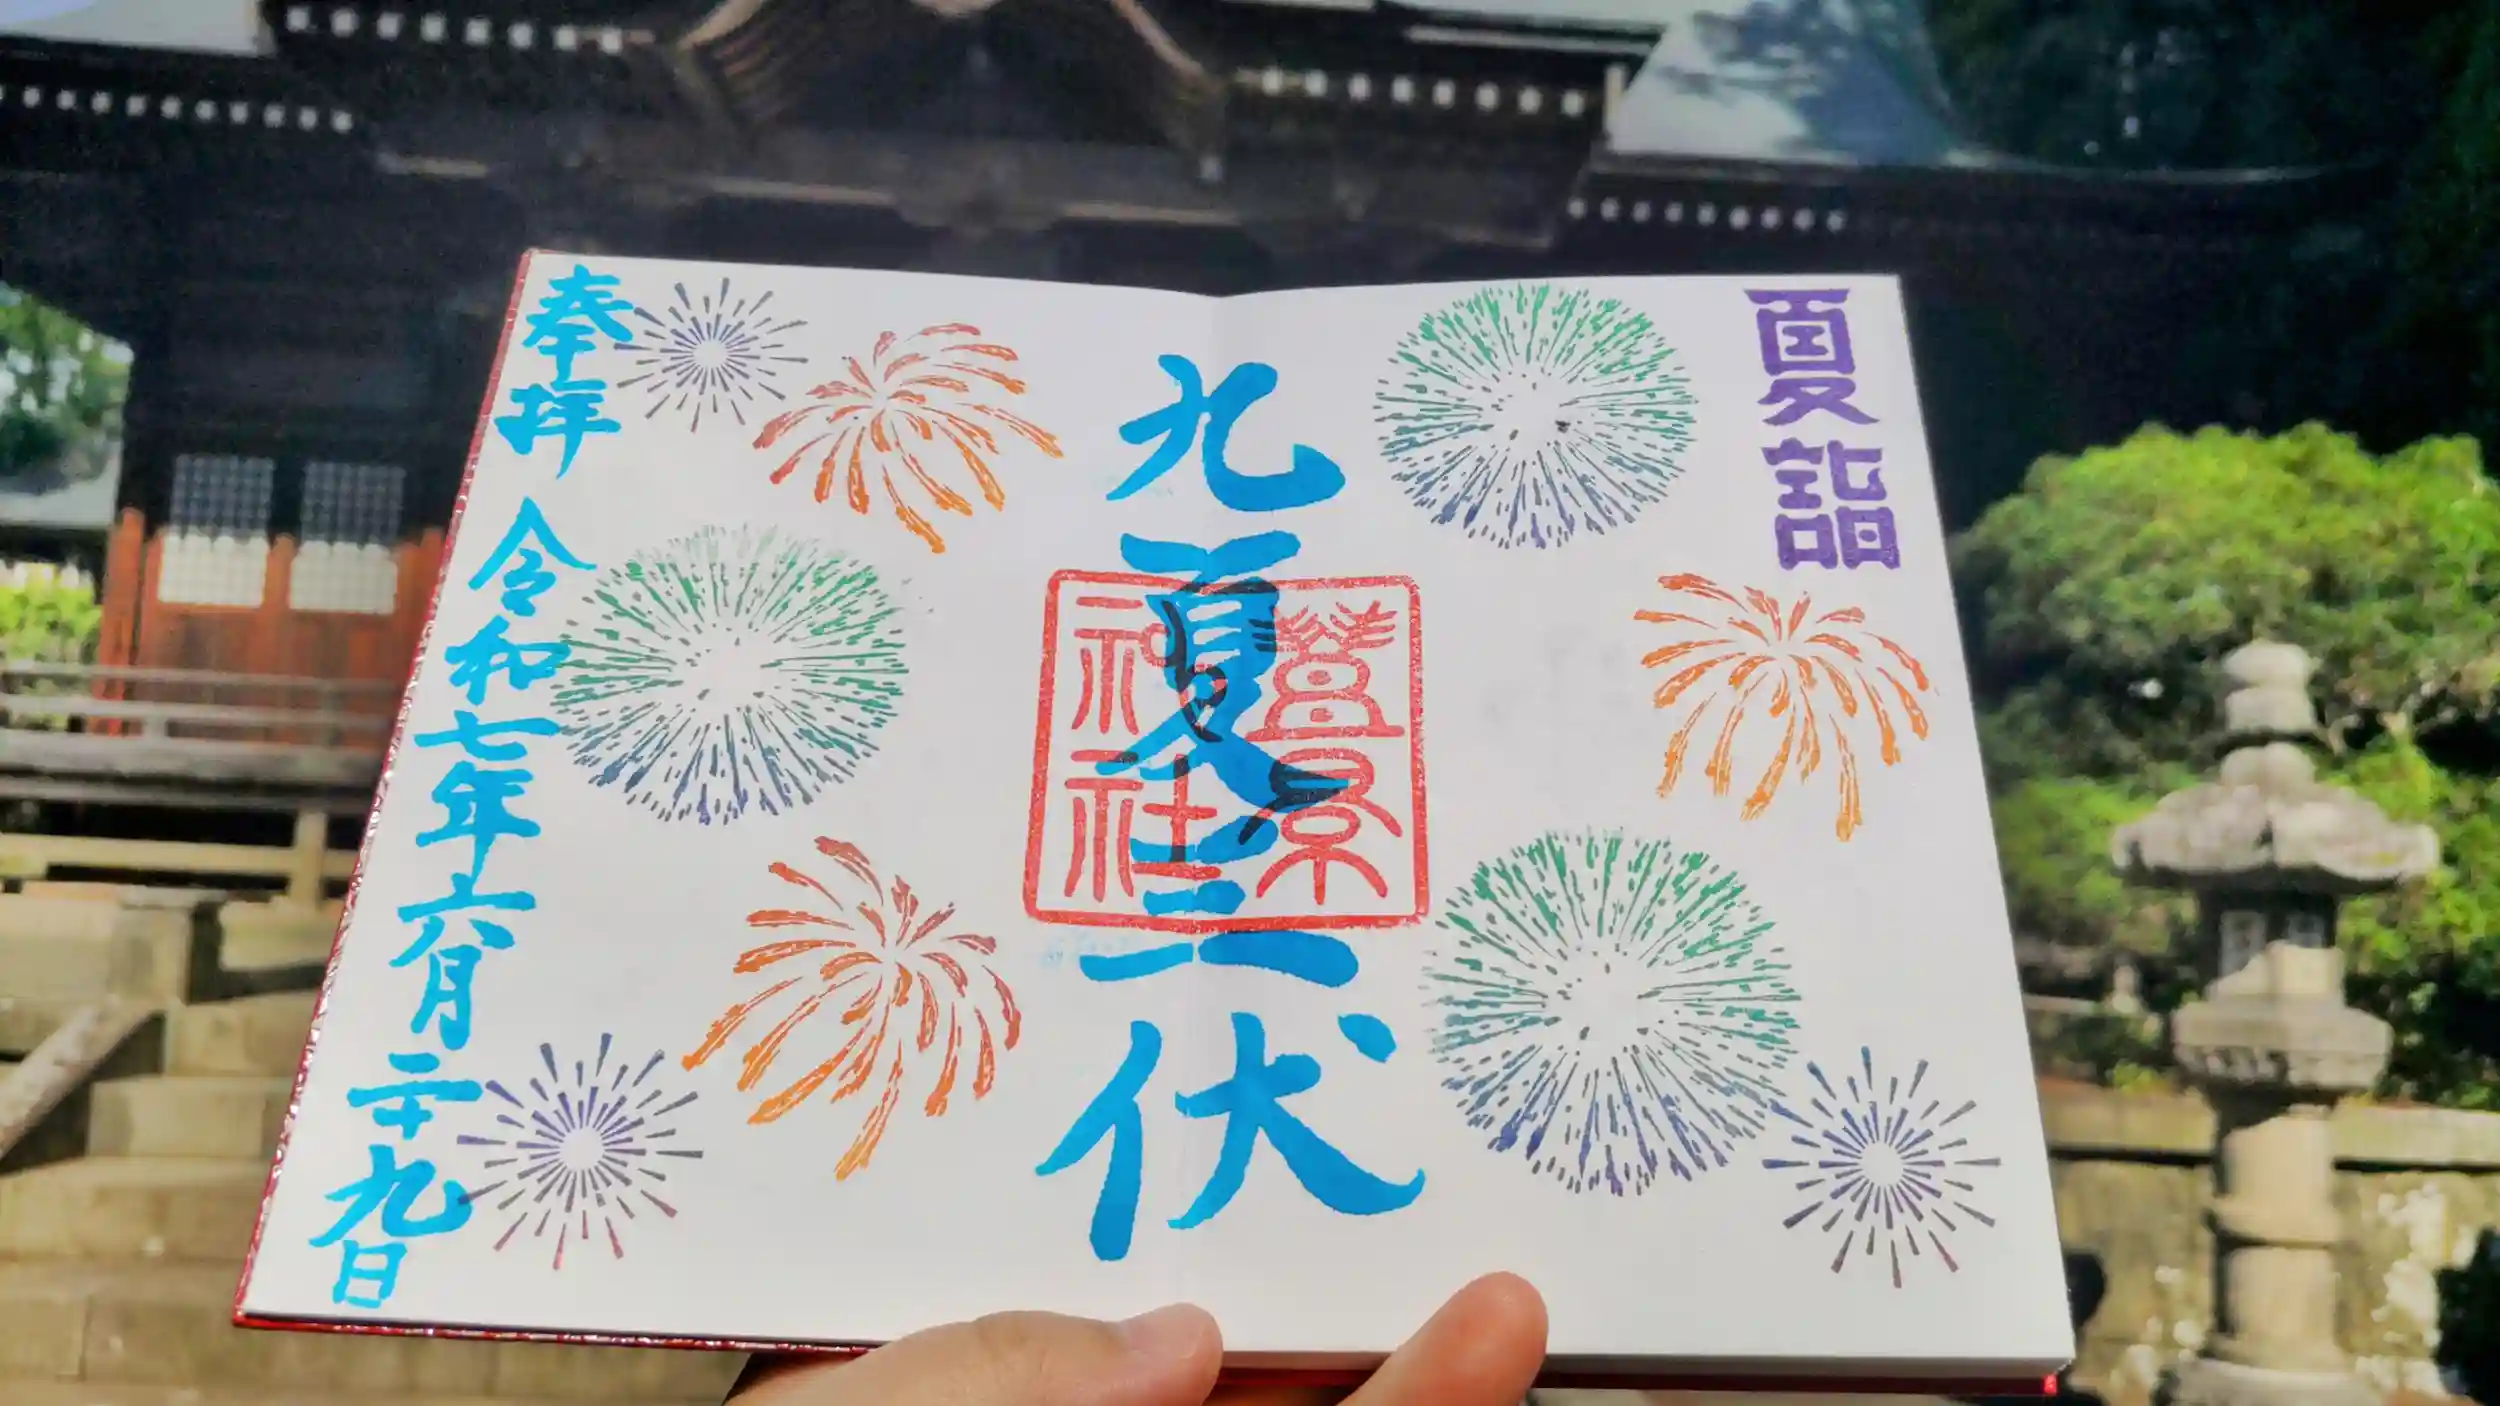 夏詣
九夏三伏
豊景神社
奉拝 令和七年六月二十九日